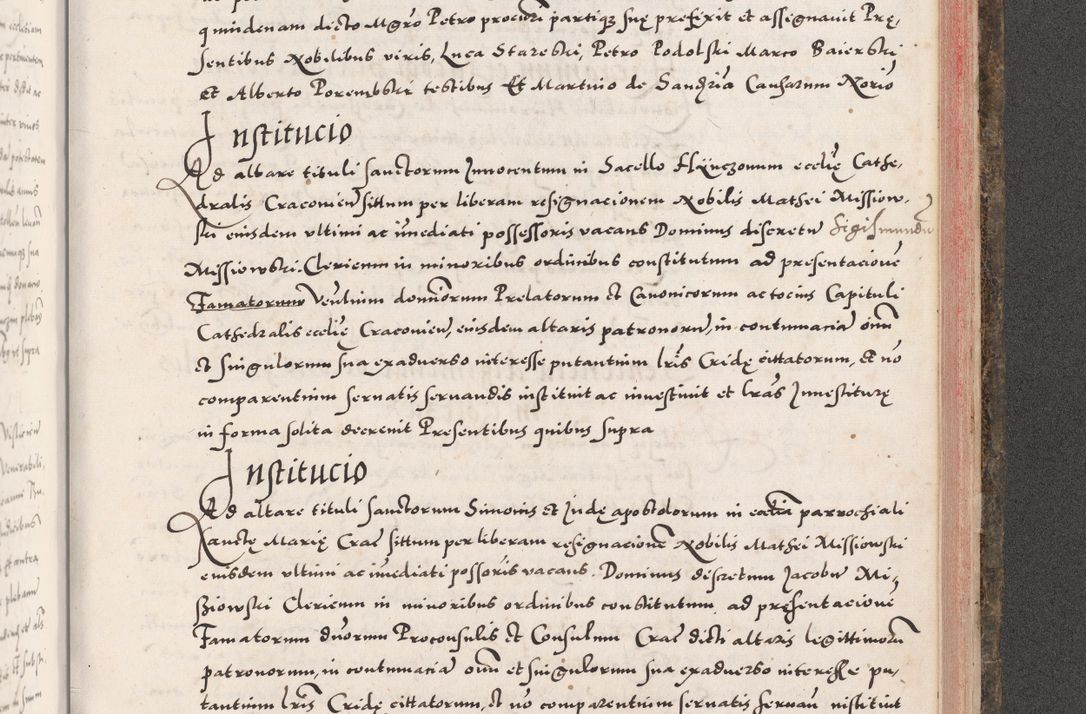 quindenam dicto Mgro Petro procuri partiqz suę prefixit et assignavit Prę,
sentibus Nobilibus viris, Luca Starzeski, Petro Podolski Marco Baierski
et Alberto Porembski testibus Et Martino de Sandzia Causarum Norio
Institucio
Ad altare tituli sanctorum Innocentum in Sacello Hÿnczonum ecclię Cathe,
dralis Cracovien situm per liberam resignacionem Nobilis Mathei Missiow,
ski eiusdem ultimi ac imediati possessoris vacans Dominus discretu Sigismundu
Missiowski Clericum in minoribus ordinibus constitutum ad presentacione
Famatorum Venlium domorum Prelatorum et Canonicorum ac tocius Capituli
Cathedralis ecclię Cracovien, eiusdem altaris patronoru, in contumacia oim
et singulorum sua exadverso interesse putantium lris Cridę cittatorum, et no
comparentium servatis servandis instituit ac investivit et lras Investiturę
in forma solita decrevit Presentibus quibus supra
Institucio
Ad altare tituli sanctorum Simonis et Iudę apostolorum in eccłia parrochiali
Sanctę Marię Crac situm per liberam resignacione Nobilis Mathei Missiowski
eiusdem ultimi ac imediati possoris vacans. Dominus discretum Jacobu Mi,
sziowski Clericum in minoribus ordinibus constitutum, ad presentacione
Famatorum dnorum Proconsulis et Consulum Crac dicti altaris legittimoru
patronorum, in contumacia oim et singulorum sua exadverso interesse pu,
tantium lris Cridę cittatorum, et no comparentium servatis servan instituit